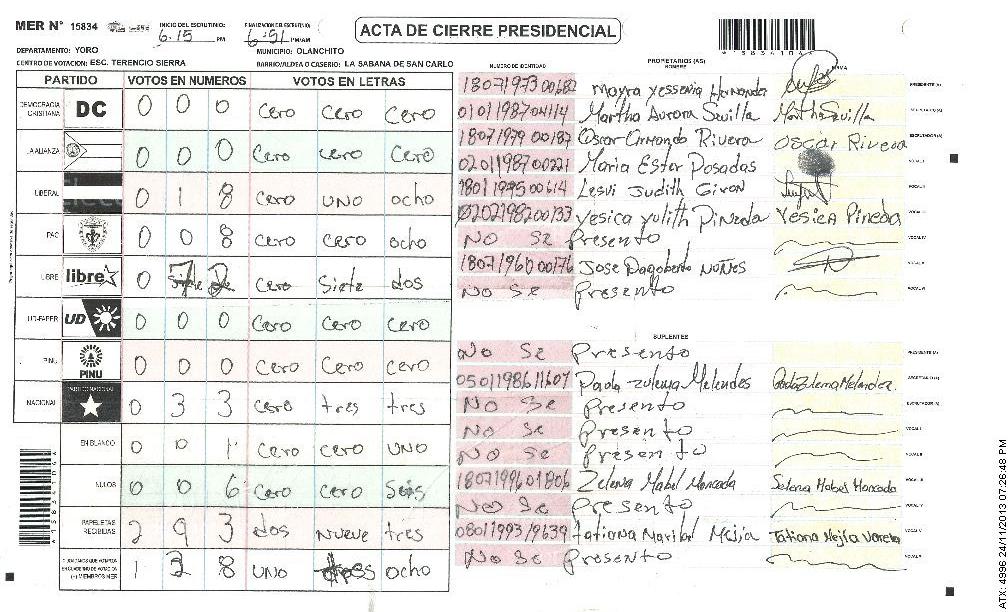 MER N° 15834 INICIO DEL ESCRUTINIO: 6:15 PM FINALIZACION DEL ESCRUTINIO: PM/AM ACTA DE CIERRE PRESIDENCIAL
DEPARTAMENTO: YORO MUNICIPIO: OLANCHITO
CENTRO DE VOTACION: ESC. TERENCIO SIERRA BARRIO/ALDEA O CASERIO: LA SABANA DE SAN CARLO
PARTIDO VOTOS EN NUMEROS VOTOS EN LETRAS
DEMOCRACIA CRISTIANA DC 0 0 0 Cero Cero Cero
LA ALIANZA 0 0 0 Cero Cero Cero
LIBERAL 0 1 8 Cero UNO ocho
PAC 0 0 8 Cero Cero ocho
LIBRE libre 0 7 Cero Siete dos
UD-FAPER UD 0 0 0 Cero Cero Cero
PINU PINU 0 0 0 Cero Cero Cero
NACIONAL PARTIDO NACIONAL 0 3 3 Cero tres tres
EN BLANCO 0 0 1 Cero Cero UNO
NULOS 0 0 6 Cero Cero Seis
PAPELETAS RECIBIDAS 2 9 3 dos Nueve tres
CIUDADANOS QUE VOTARON EN CUADERNO DE VOTACION (+) MIEMBROS MER 1 3 8 UNO tres ocho
PROPIETARIOS (AS)
NUMERO DE IDENTIDAD NOMBRE FIRMA
1807197300682 Mayra Yessenia Hernandez PRESIDENTE (A)
0101198704114 Martha Aurora Sevilla Martha Sevilla SECRETARIO (A)
1807197900187 Oscar Armando Rivera Oscar Rivera ESCRUTADOR (A)
0201198700221 Maria Ester Posadas VOCAL I
1801197500614 Lesvi Judith Giron VOCAL II
0202198200133 Yesica Yulith Pineda Yesica Pineda VOCAL III
No Se Presento VOCAL IV
1807196000176 Jose Dagoberto Nuñes VOCAL V
No Se Presento VOCAL VI
SUPLENTES
No Se Presento PRESIDENTE (A)
0501198611607 Paola Zulema Melendes Paola Zulema Melendez SECRETARIO (A)
No Se Presento ESCRUTADOR (A)
No Se Presento VOCAL I
No Se Presento VOCAL II
1807199601806 Zelena Mabel Moncada Selena Mabel Moncada VOCAL III
No Se Presento VOCAL IV
0801199319639 Tatiana Maribel Mejia Tatiana Mejia Varela VOCAL V
No Se Presento VOCAL VI
ATX: 4996 24/11/2013 07:26:48 PM